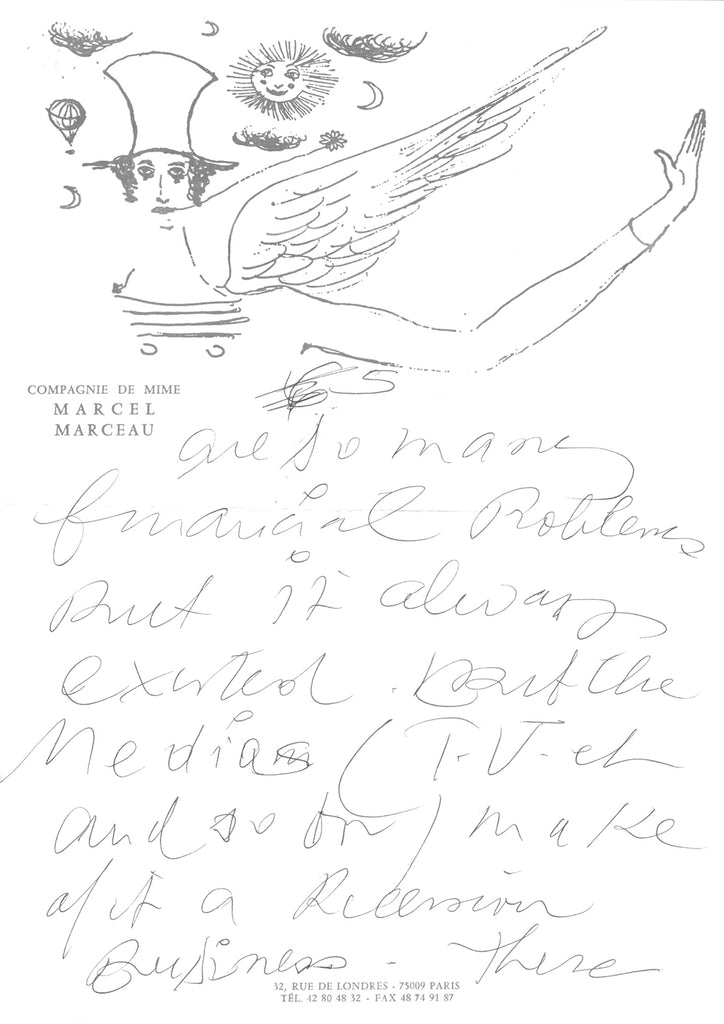 COMPAGNIE DE MIME
MARCEL
MARCEAU
5
are so many
financial Problems
But it always
existed. But the
Medias (T-V- et
and so on) make
of it a Recession
Business - There
32, RUE DE LONDRES - 75009 PARIS
TÉL. 42 80 48 32 - FAX 48 74 91 87